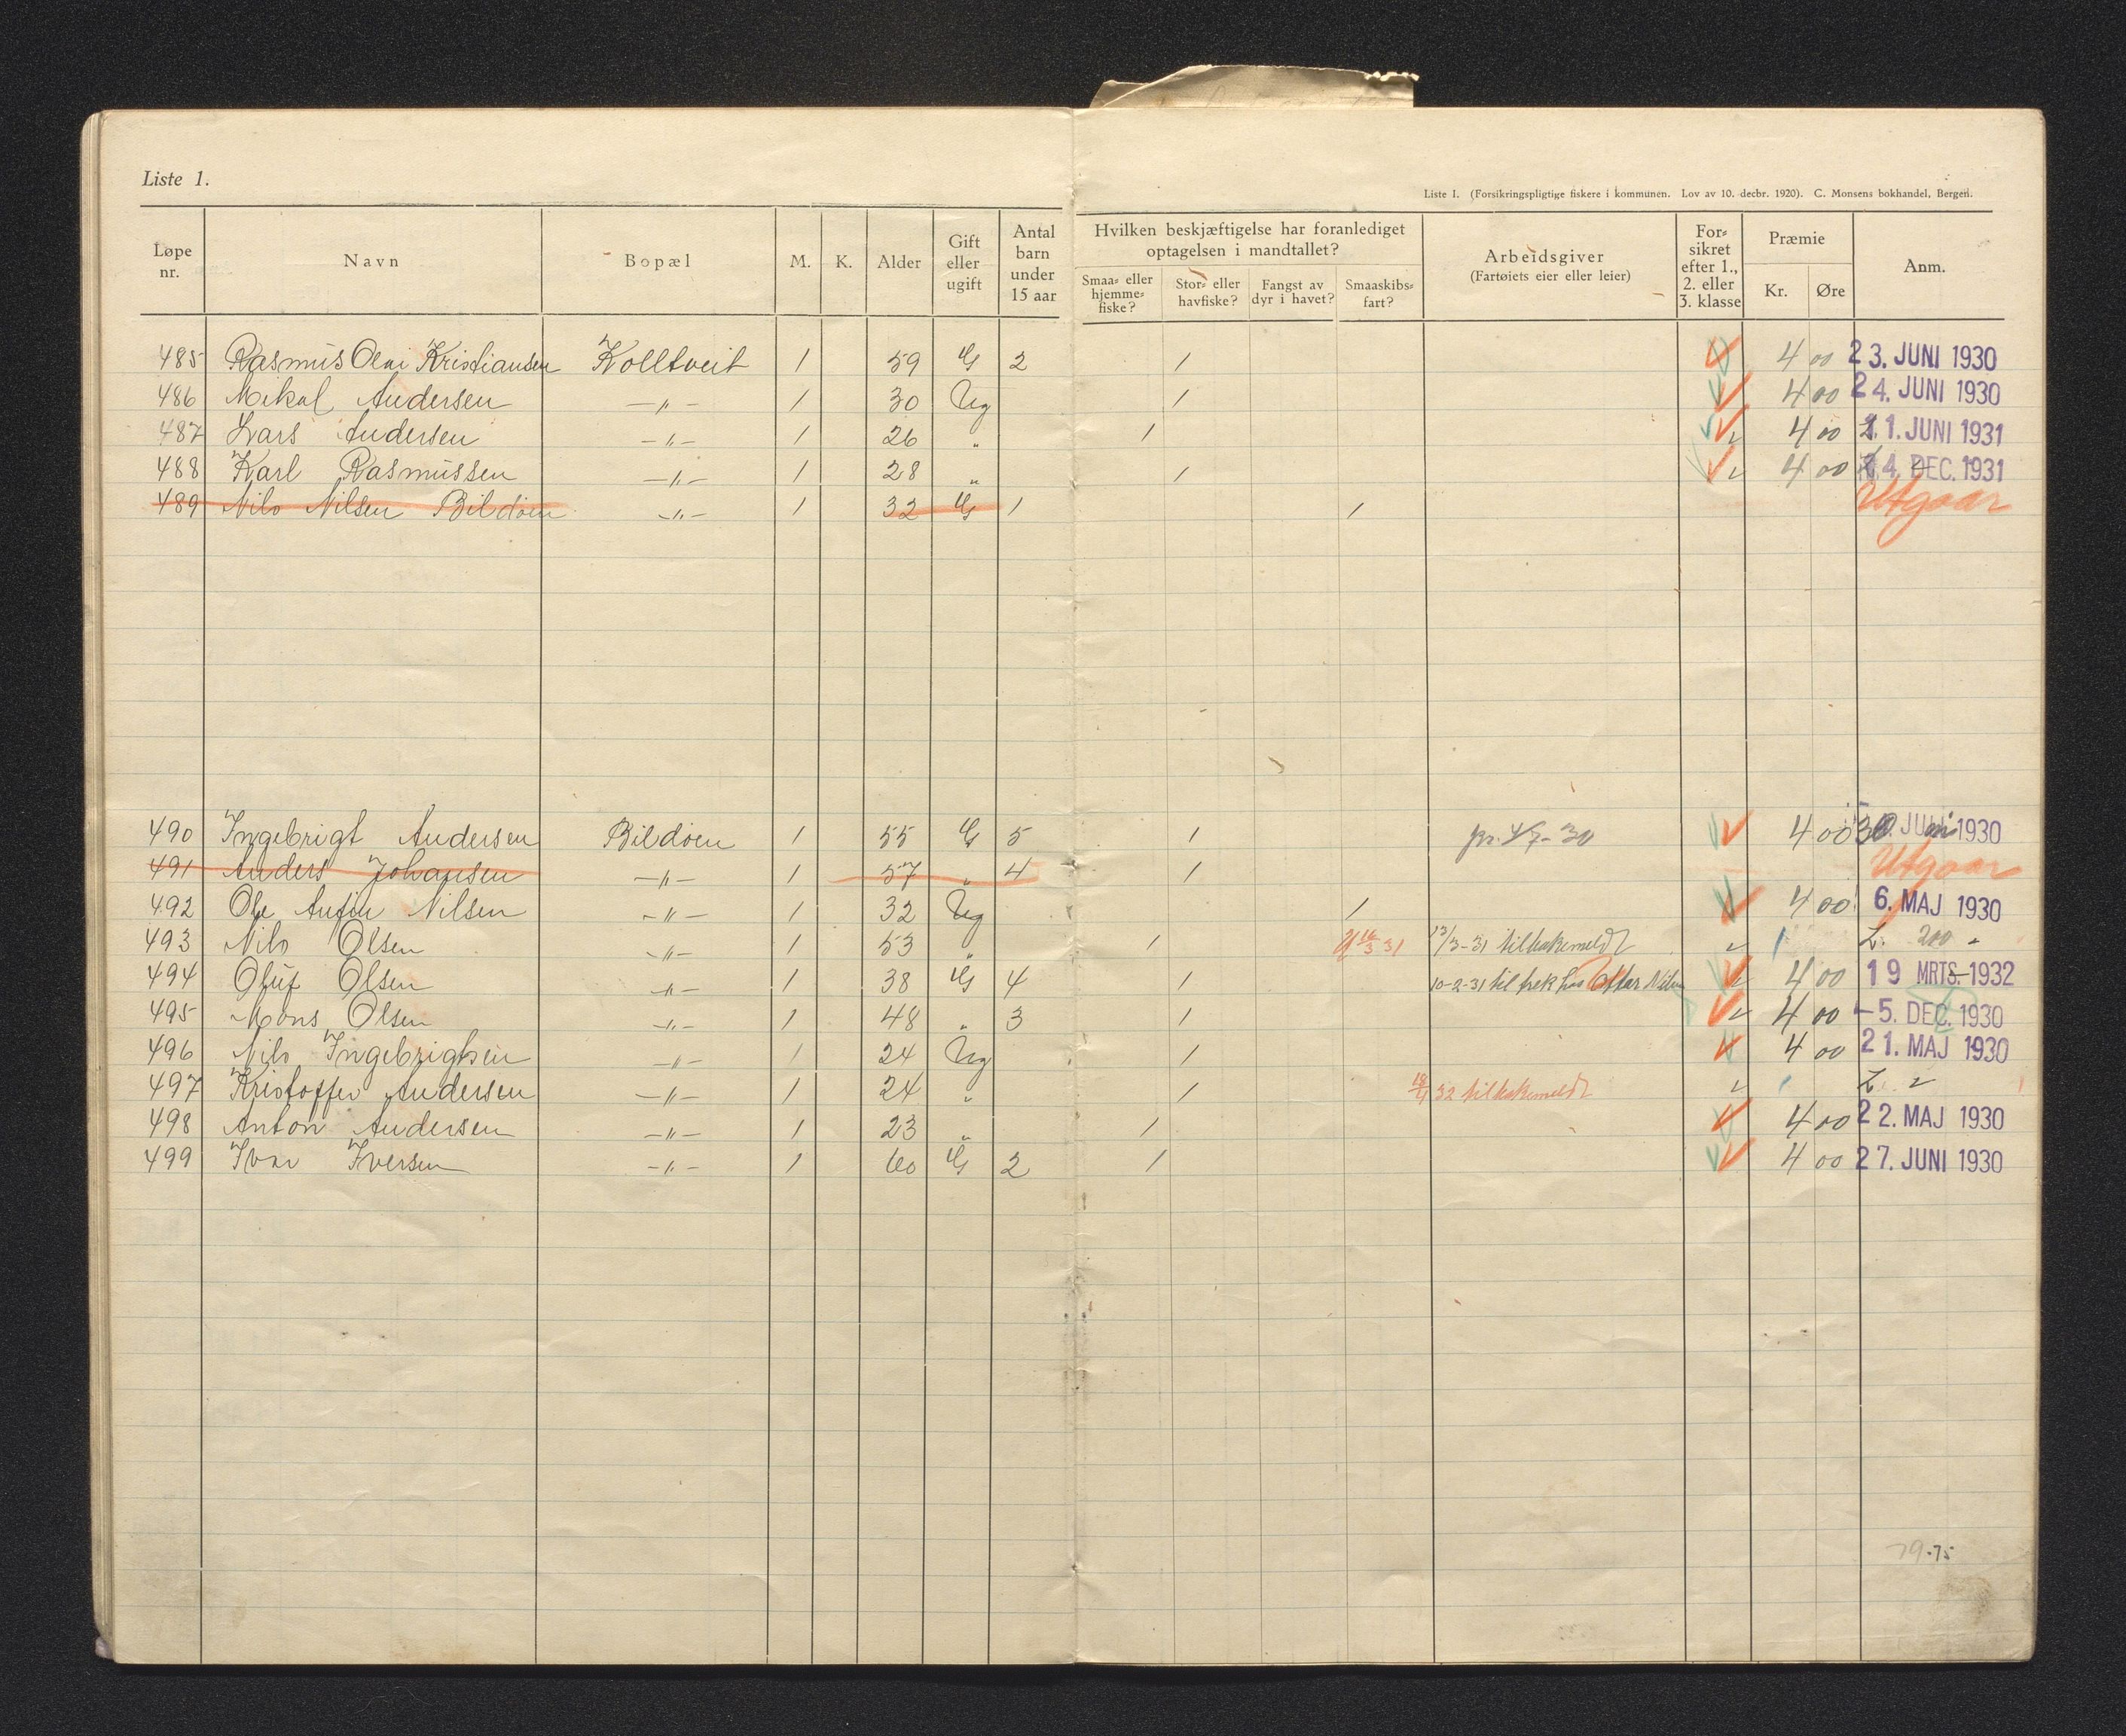 Liste 1.
Liste I. (Forsikringspligtige fiskere i kommunen. Lov av 10. decbr. 1920). C. Monsens bokhandel, Bergen.
Løpe nr. Navn Bopæl M. K. Alder Gift eller ugift Antal barn under 15 aar Hvilken beskjæftigelse har foranlediget optagelsen i mandtallet? Arbeidsgiver (Fartøiets eier eller leier) For-sikret efter 1., 2. eller 3. klasse Præmie Anm.
Smaa- eller hjemme-fiske? Stor- eller havfiske? Fangst av dyr i havet? Smaaskibs-fart? Kr. Øre
485 Rasmus Olai Kristiansen Kolltveit 1 59 G 2 1 4 00 23. JUNI 1930
486 Mikal Andersen —"— 1 30 Ug 1 4 00 24. JUNI 1930
487 Lars Andersen —"— 1 26 " 1 4 00 11. JUNI 1931
488 Karl Rasmussen —"— 1 28 " 1 4 00 DEC. 1931
489 Nils Nilsen Bildöen —"— 1 32 G 1 1 Utgaar
490 Ingebrigt Andersen Bildöen 1 55 G 5 1 4 00 1930
491 Anders Johansen —"— 1 57 " 4 1 Utgaar
492 Ole Anfin Nilsen —"— 1 32 Ug 1 4 00 6. MAJ 1930
493 Nils Olsen —"— 1 53 " 1 31 /3-31 tilbakemeldt
494 Oluf Olsen —"— 1 38 G 4 1 10-2-31 til trek hos Nilsen 4 00 19 MRTS. 1932
495 Mons Olsen —"— 1 48 " 3 1 4 00 -5. DEC. 1930
496 Nils Ingebrigtsen —"— 1 24 Ug 1 4 00 21. MAJ 1930
497 Kristoffer Andersen —"— 1 24 " 1 32 tilbakemeldt
498 Anton Andersen —"— 1 23 " 1 4 00 22. MAJ 1930
499 Ivar Iversen —"— 1 60 G 2 1 4 00 27. JUNI 1930
79.75